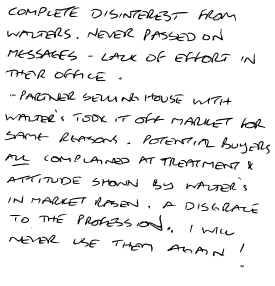 COMPLETE DISINTEREST FROM
WALTERS. NEVER PASSED ON
MESSAGES - LACK OF EFFORT IN
THEIR OFFICE.
- PARTNER SELLING HOUSE WITH
WALTER'S TOOK IT OFF MARKET FOR
SAME REASONS. POTENTIAL BUYERS
ALL COMPLAINED AT TREATMENT &
ATTITUDE SHOWN BY WALTER'S
IN MARKET RASEN. A DISGRACE
TO THE PROFESSION.. I WILL
NEVER USE THEM AGAIN!